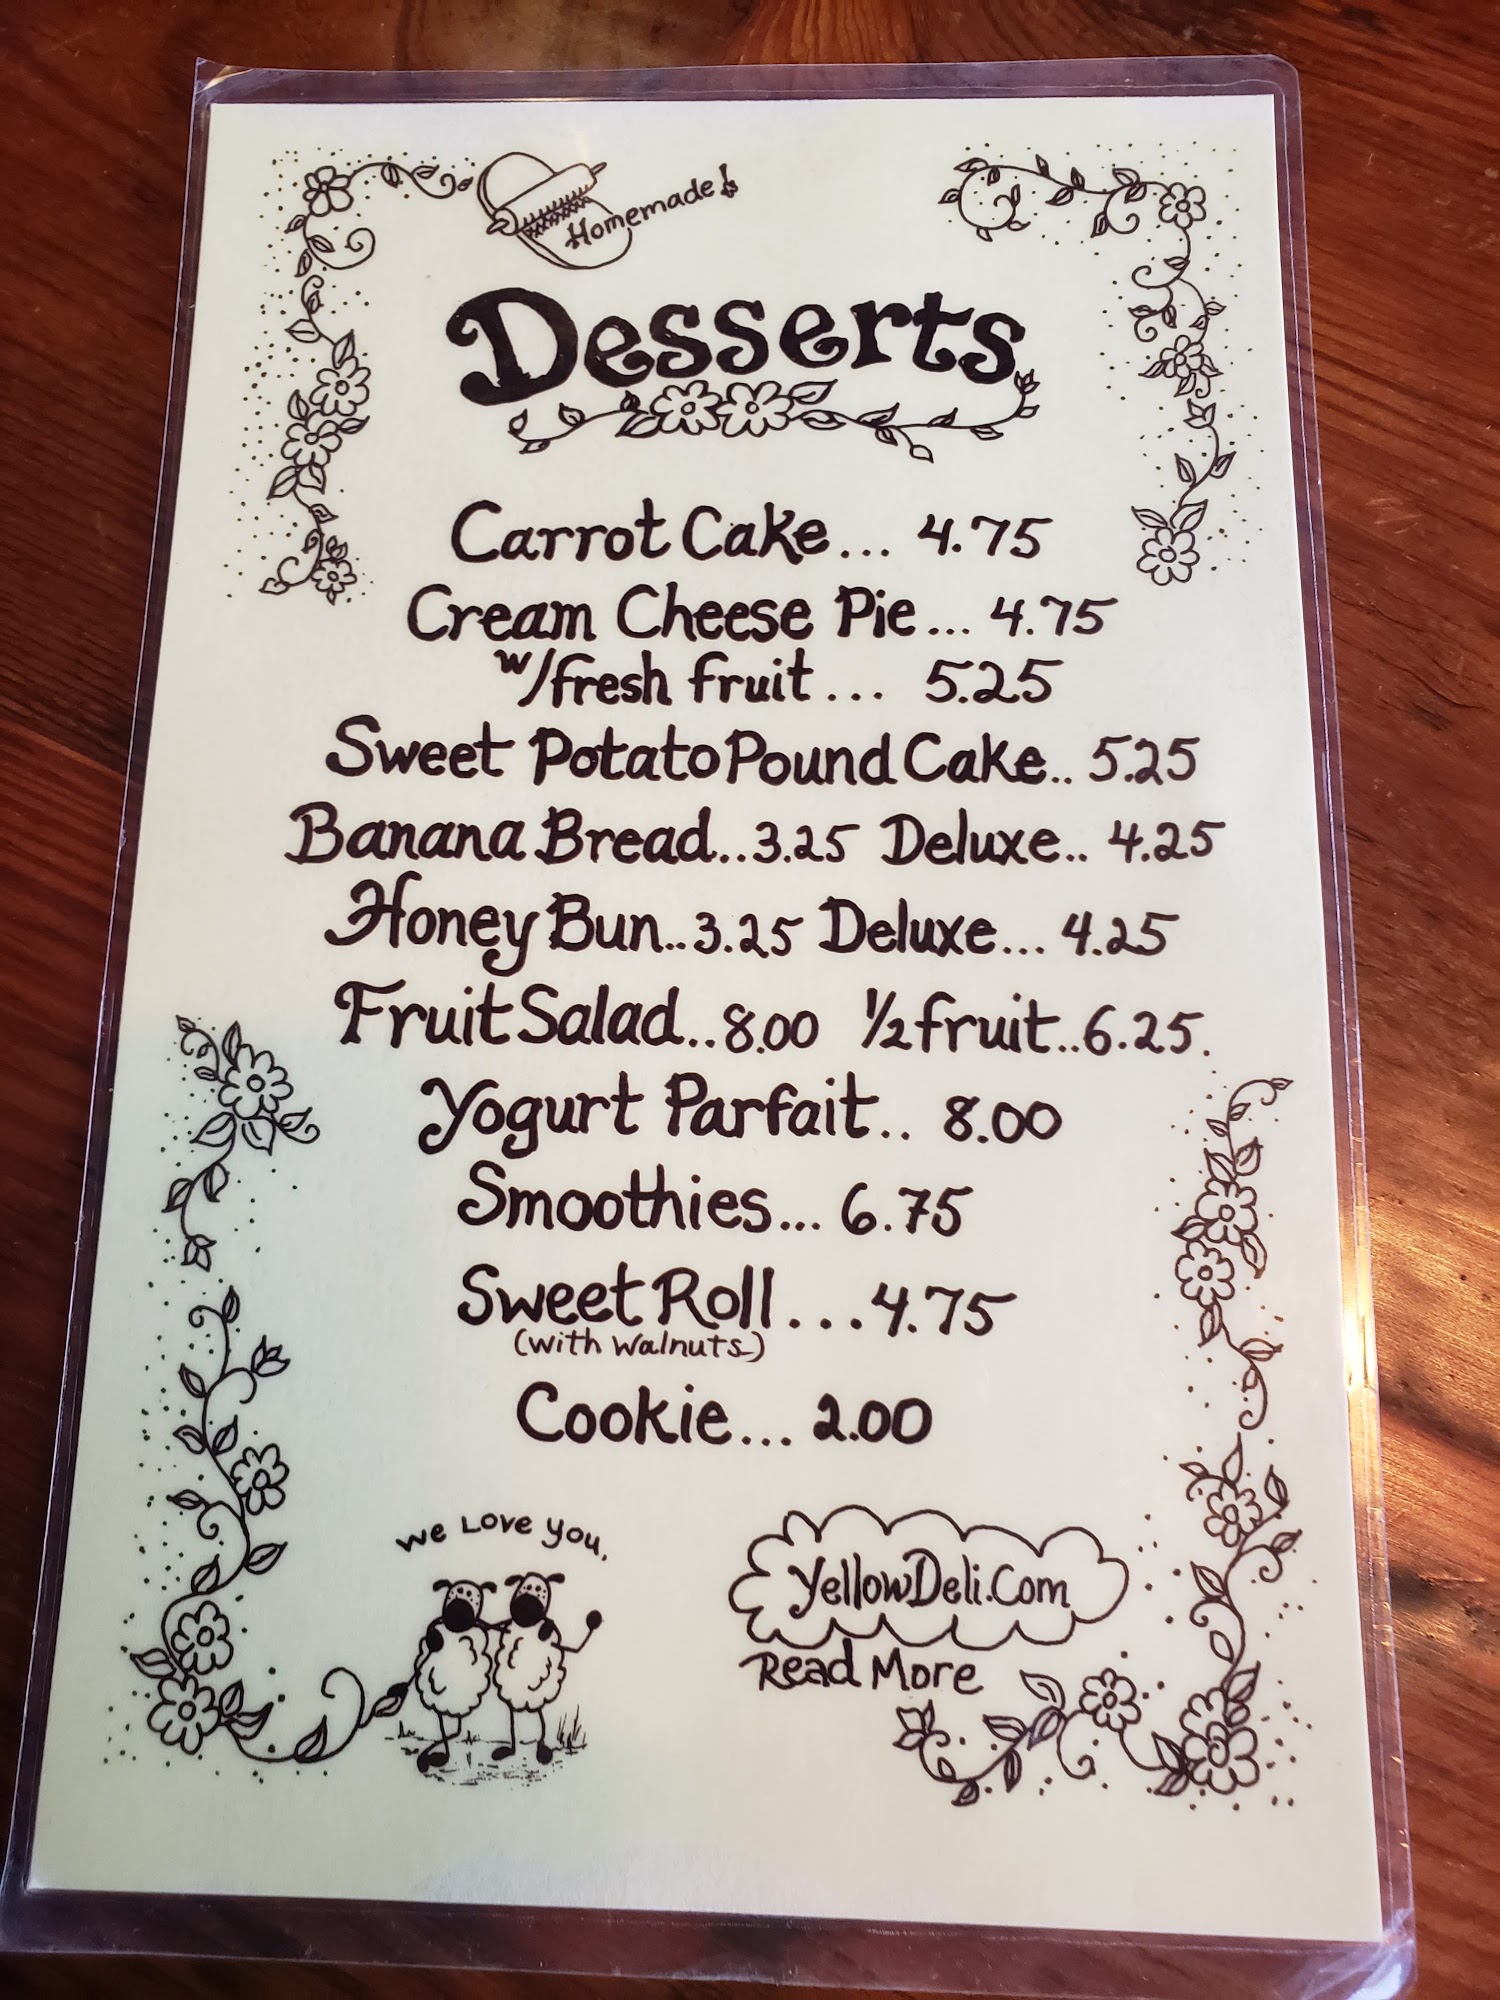 Homemade!
Desserts
Carrot Cake... 4.75
Cream Cheese Pie... 4.75
w/fresh fruit... 5.25
Sweet Potato Pound Cake.. 5.25
Banana Bread..3.25 Deluxe.. 4.25
Honey Bun..3.25 Deluxe... 4.25
Fruit Salad..8.00 1/2 fruit..6.25
Yogurt Parfait.. 8.00
Smoothies... 6.75
Sweet Roll...4.75
(with walnuts)
Cookie... 2.00
We Love you,
YellowDeli.Com
Read More